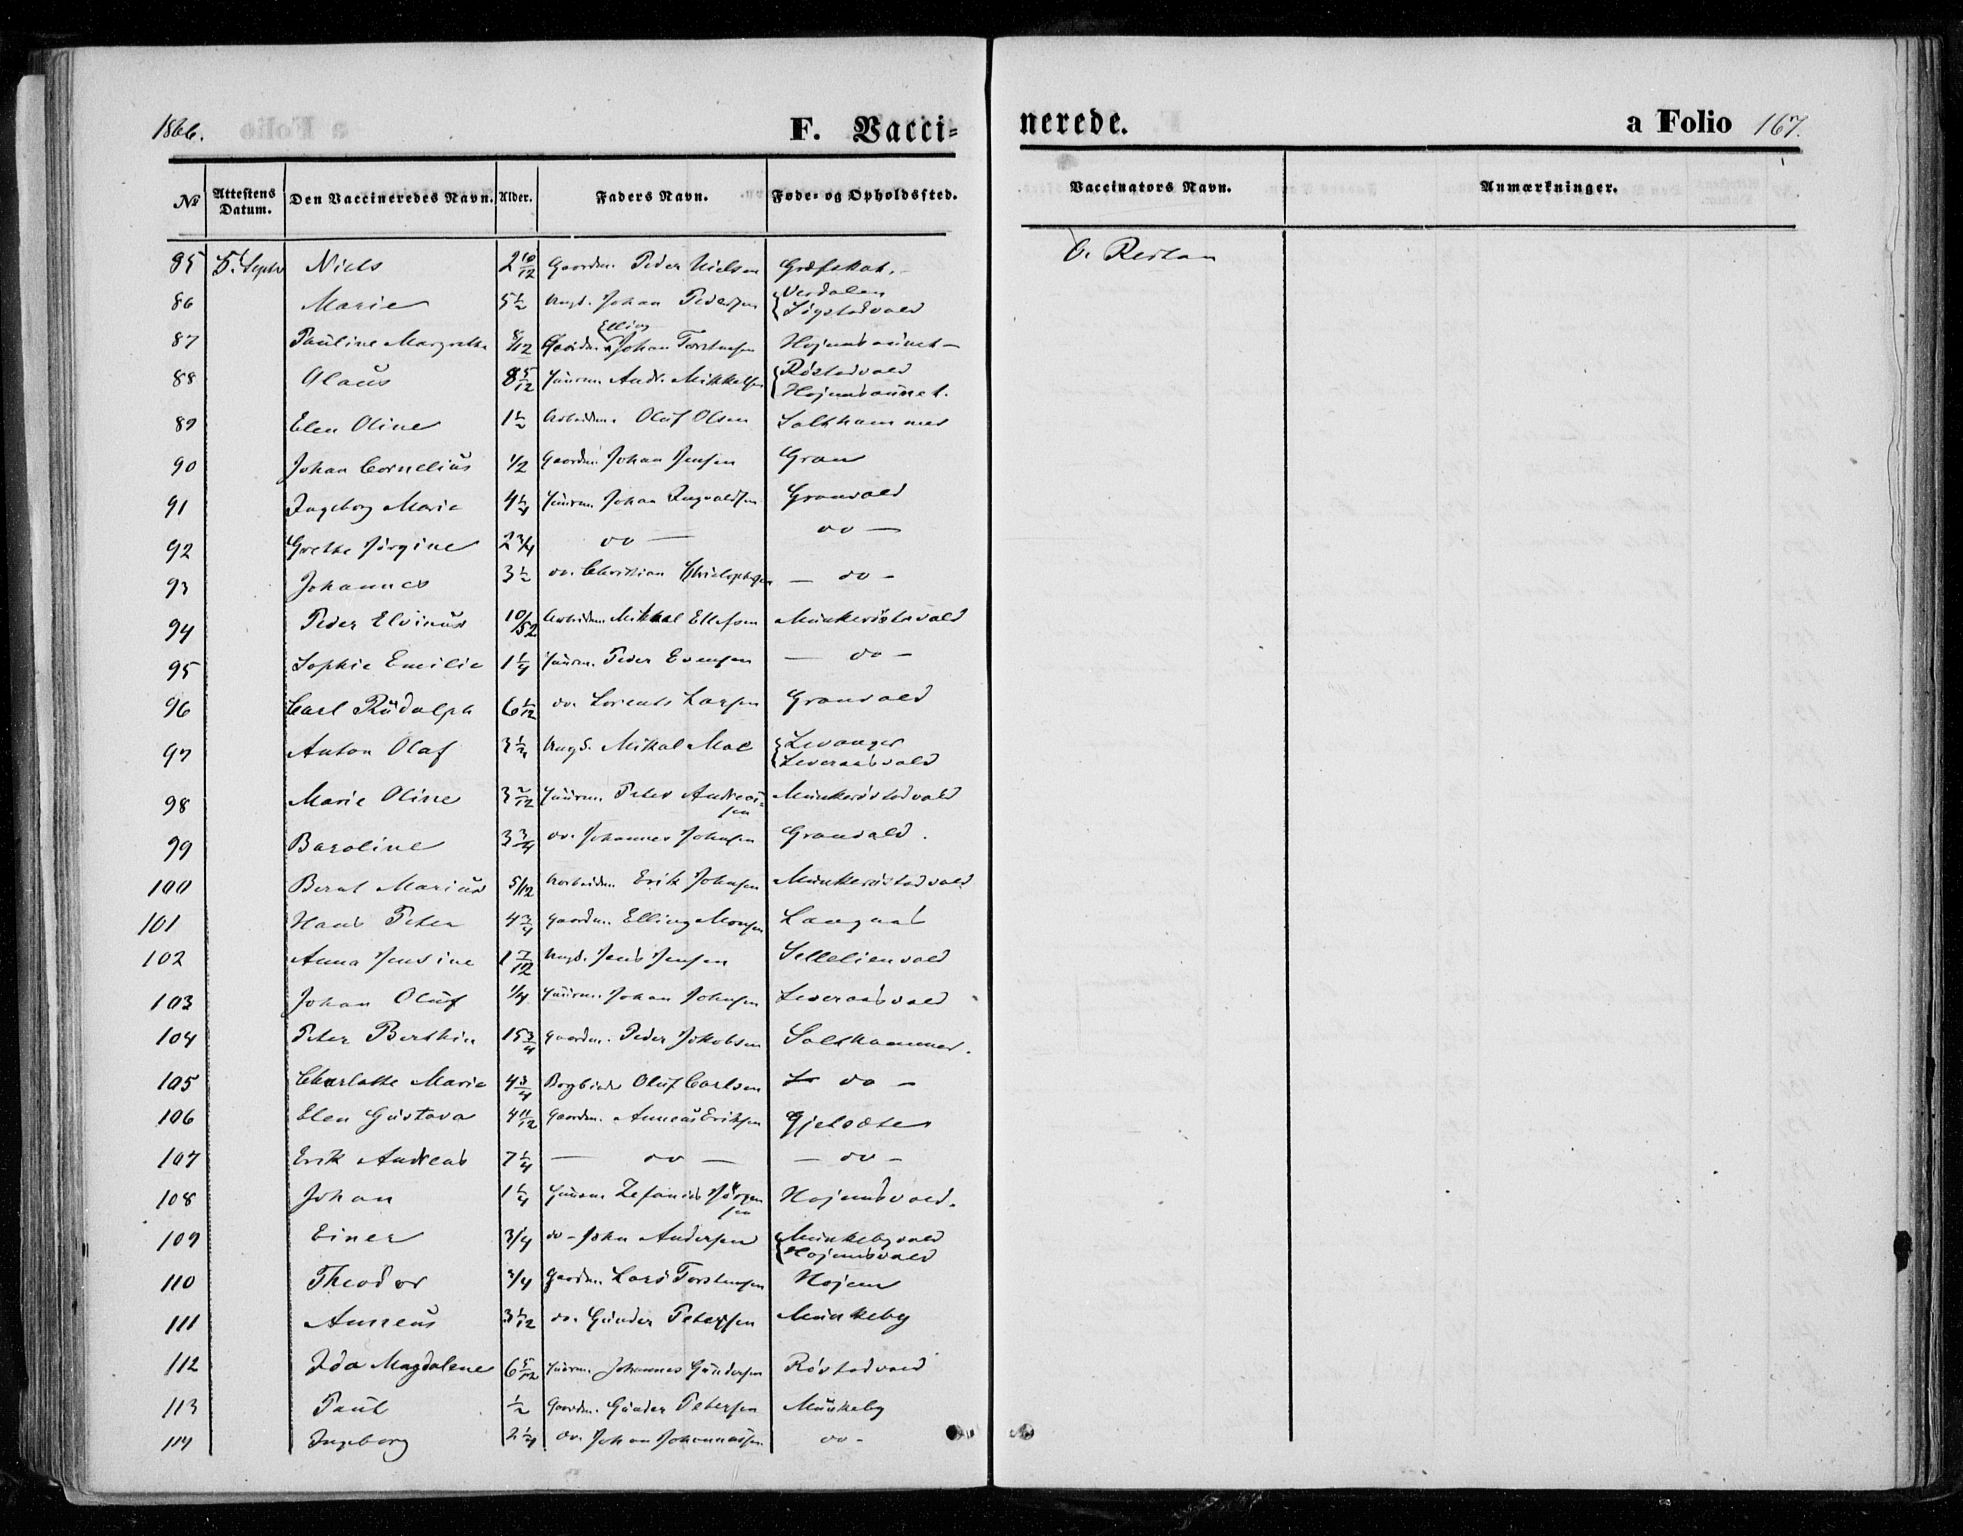 1866.
F. Vacci=
nerede.
a Folio 167.
No Attestens Datum. Den Vaccineredes Navn. Alder. Faders Navn. Føde- og Opholdssted. Vaccinators Navn. Anmærkninger.
85 5. Septr Niels 2 10/12 Gaardm. Peder Nielsen O. Reitan
86 Marie 5 1/2 Ungk. Johan Pedersen Verdalen
87 Pauline Margrethe 8/12 Gaardm. Johan Torstensen Hojemsaunet
Elling
88 Olaus 8 5/12 Huusm. Andr. Mikkelsen Røstadvald
Hojemsaunet.
89 Elen Oline 1 1/2 Arbeidsm. Oluf Olsen Salthammer
90 Johan Cornelius 1/2 Gaardm. Johan Jensen Gran
91 Ingeborg Marie 4 1/4 Huusm. Johan Ingvaldsen Granvald
92 Grethe Jørgine 2 3/4 do — do —
93 Johannes 3 1/2 do. Christian Christophersen — do —
94 Peder Elvinus 10/52 Arbeidsm. Mikkal Ellefsen
95 Sophie Emilie 1 1/4 Huusm. Peder Evensen — do —
96 Carl Rudolph 6 1/12 do. Lorents Larsen Granvald
97 Anton Olaf Ungk. Mikal Moe Levanger
Leveraasvald
98 Marie Oline Huusm. Peter Andreas=
sen
99 Baroline 3 3/4 do. Johannes Johnsen Granvald.
100 Bernt Marius 5/12 Arbeidsm. Erik Johnsen Munkerøstadvald
101 Hans Peter 4 3/4 Gaardm. Elling Monsen Langnæs
102 Anna Jensine 1 7/12 Ungk. Jens Jensen
103 Johan Oluf 1/4 Huusm. Johan Johnsen Leveraasvald
104 Peter Berthin 15 3/4 Gaardm. Peder Jakobsen Salthammer.
105 Charlotte Marie 4 3/4 Bogbinder Oluf Carlsen — do —
106 Elen Gustava 4 11/12 Gaardm. Anneus Eriksen Gjelsæter
107 Erik Andreas 7 1/4 — do — — do —
108 Johan 1 1/4 Huusm. Zefanias Jørgen
sen Hojemsvald.
109 Einer 3/4 do — John Andersen Munkebyvald
Hojemsvald
110 Theodor 3/4 Gaardm. Lars Torstensen Hojem
111 Anneus 3 1/12 do. Gunder Petersen Munkeby
112 Ida Magdalene 6 5/12 Huusm. Johannes Gundersen Røstadvald
113 Paul 1/2 Gaardm. Gunder Petersen Munkeby
114 Ingeborg 2 1/4 do. Johan Johannessen do —